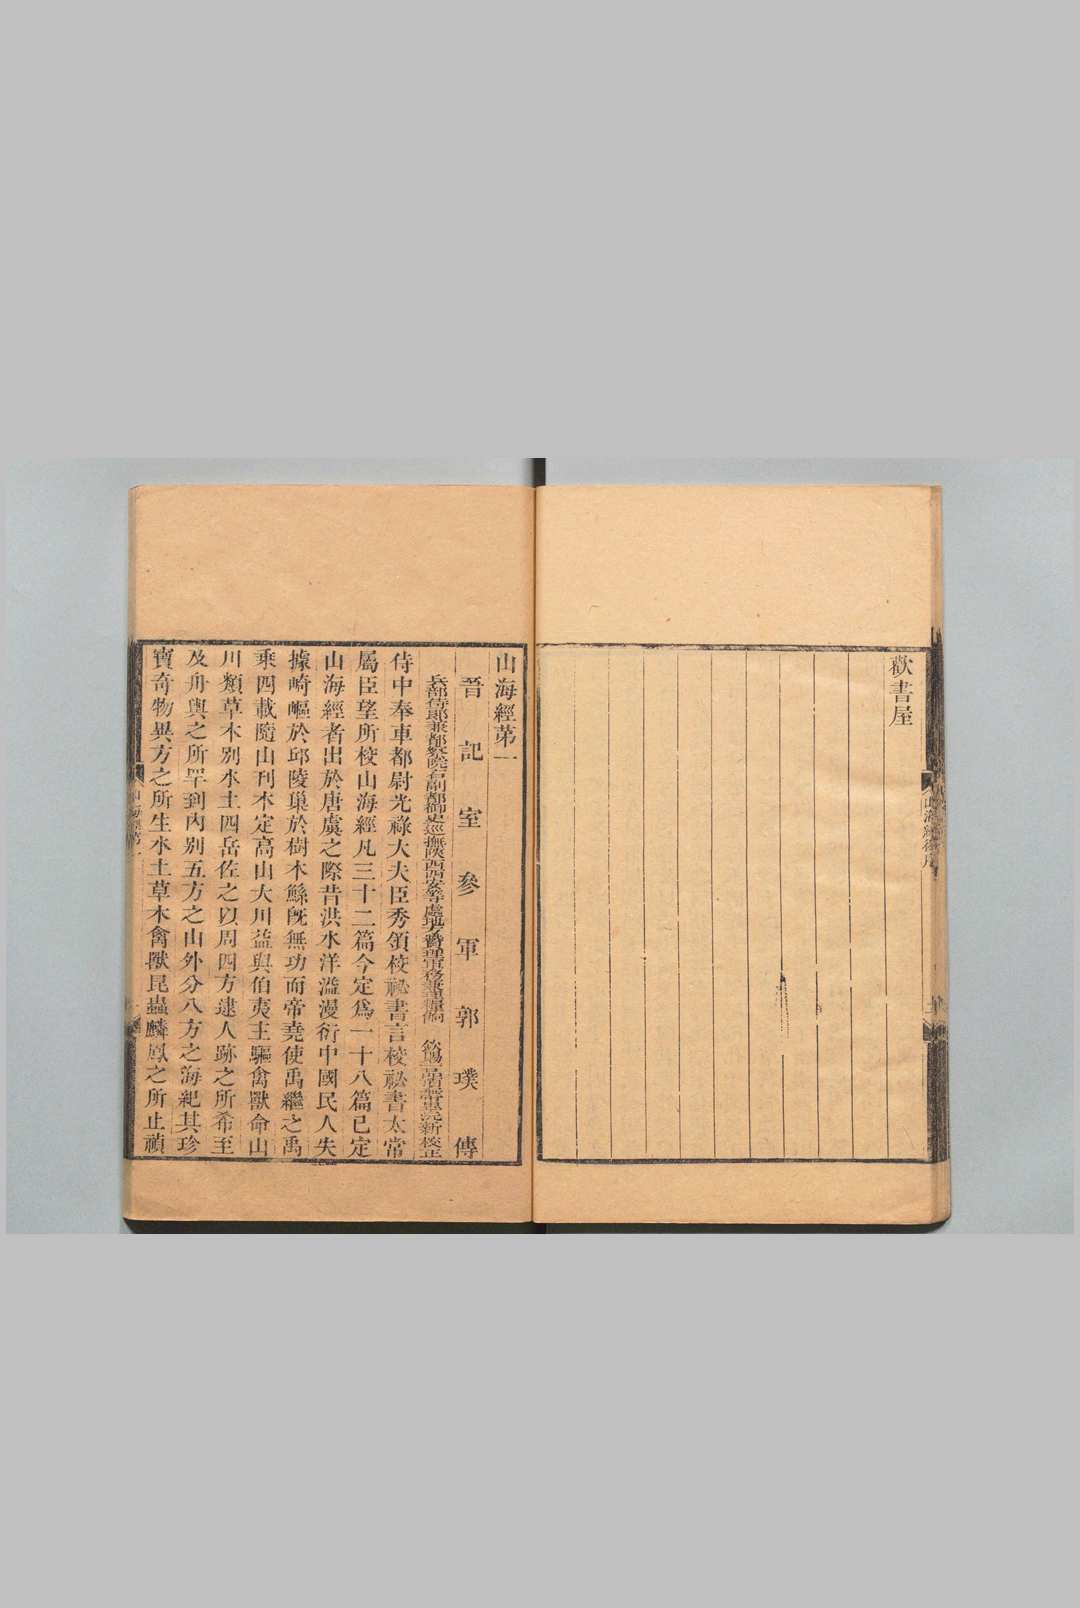 歡書屋
山海經後序
山海經第一
晉記室參軍郭璞傳
兵部侍郎兼都察院右副都御史巡撫陝西西安等處地方贊理軍務兼理糧餉 欽賜一品頂帶畢沅新校正
侍中奉車都尉光祿大夫臣秀領校祕書言校祕書太常
屬臣望所校山海經凡三十二篇今定爲一十八篇已定
山海經者出於唐虞之際昔洪水洋溢漫衍中國民人失
據崎嶇於邱陵巢於樹木鯀旣無功而帝堯使禹繼之禹
乘四載隨山刊木定高山大川益與伯夷主驅禽獸命山
川類草木別水土四岳佐之以周四方逮人跡之所希至
及舟輿之所罕到內別五方之山外分八方之海紀其珍
寶奇物異方之所生水土草木禽獸昆蟲麟鳳之所止禎
山海經第一